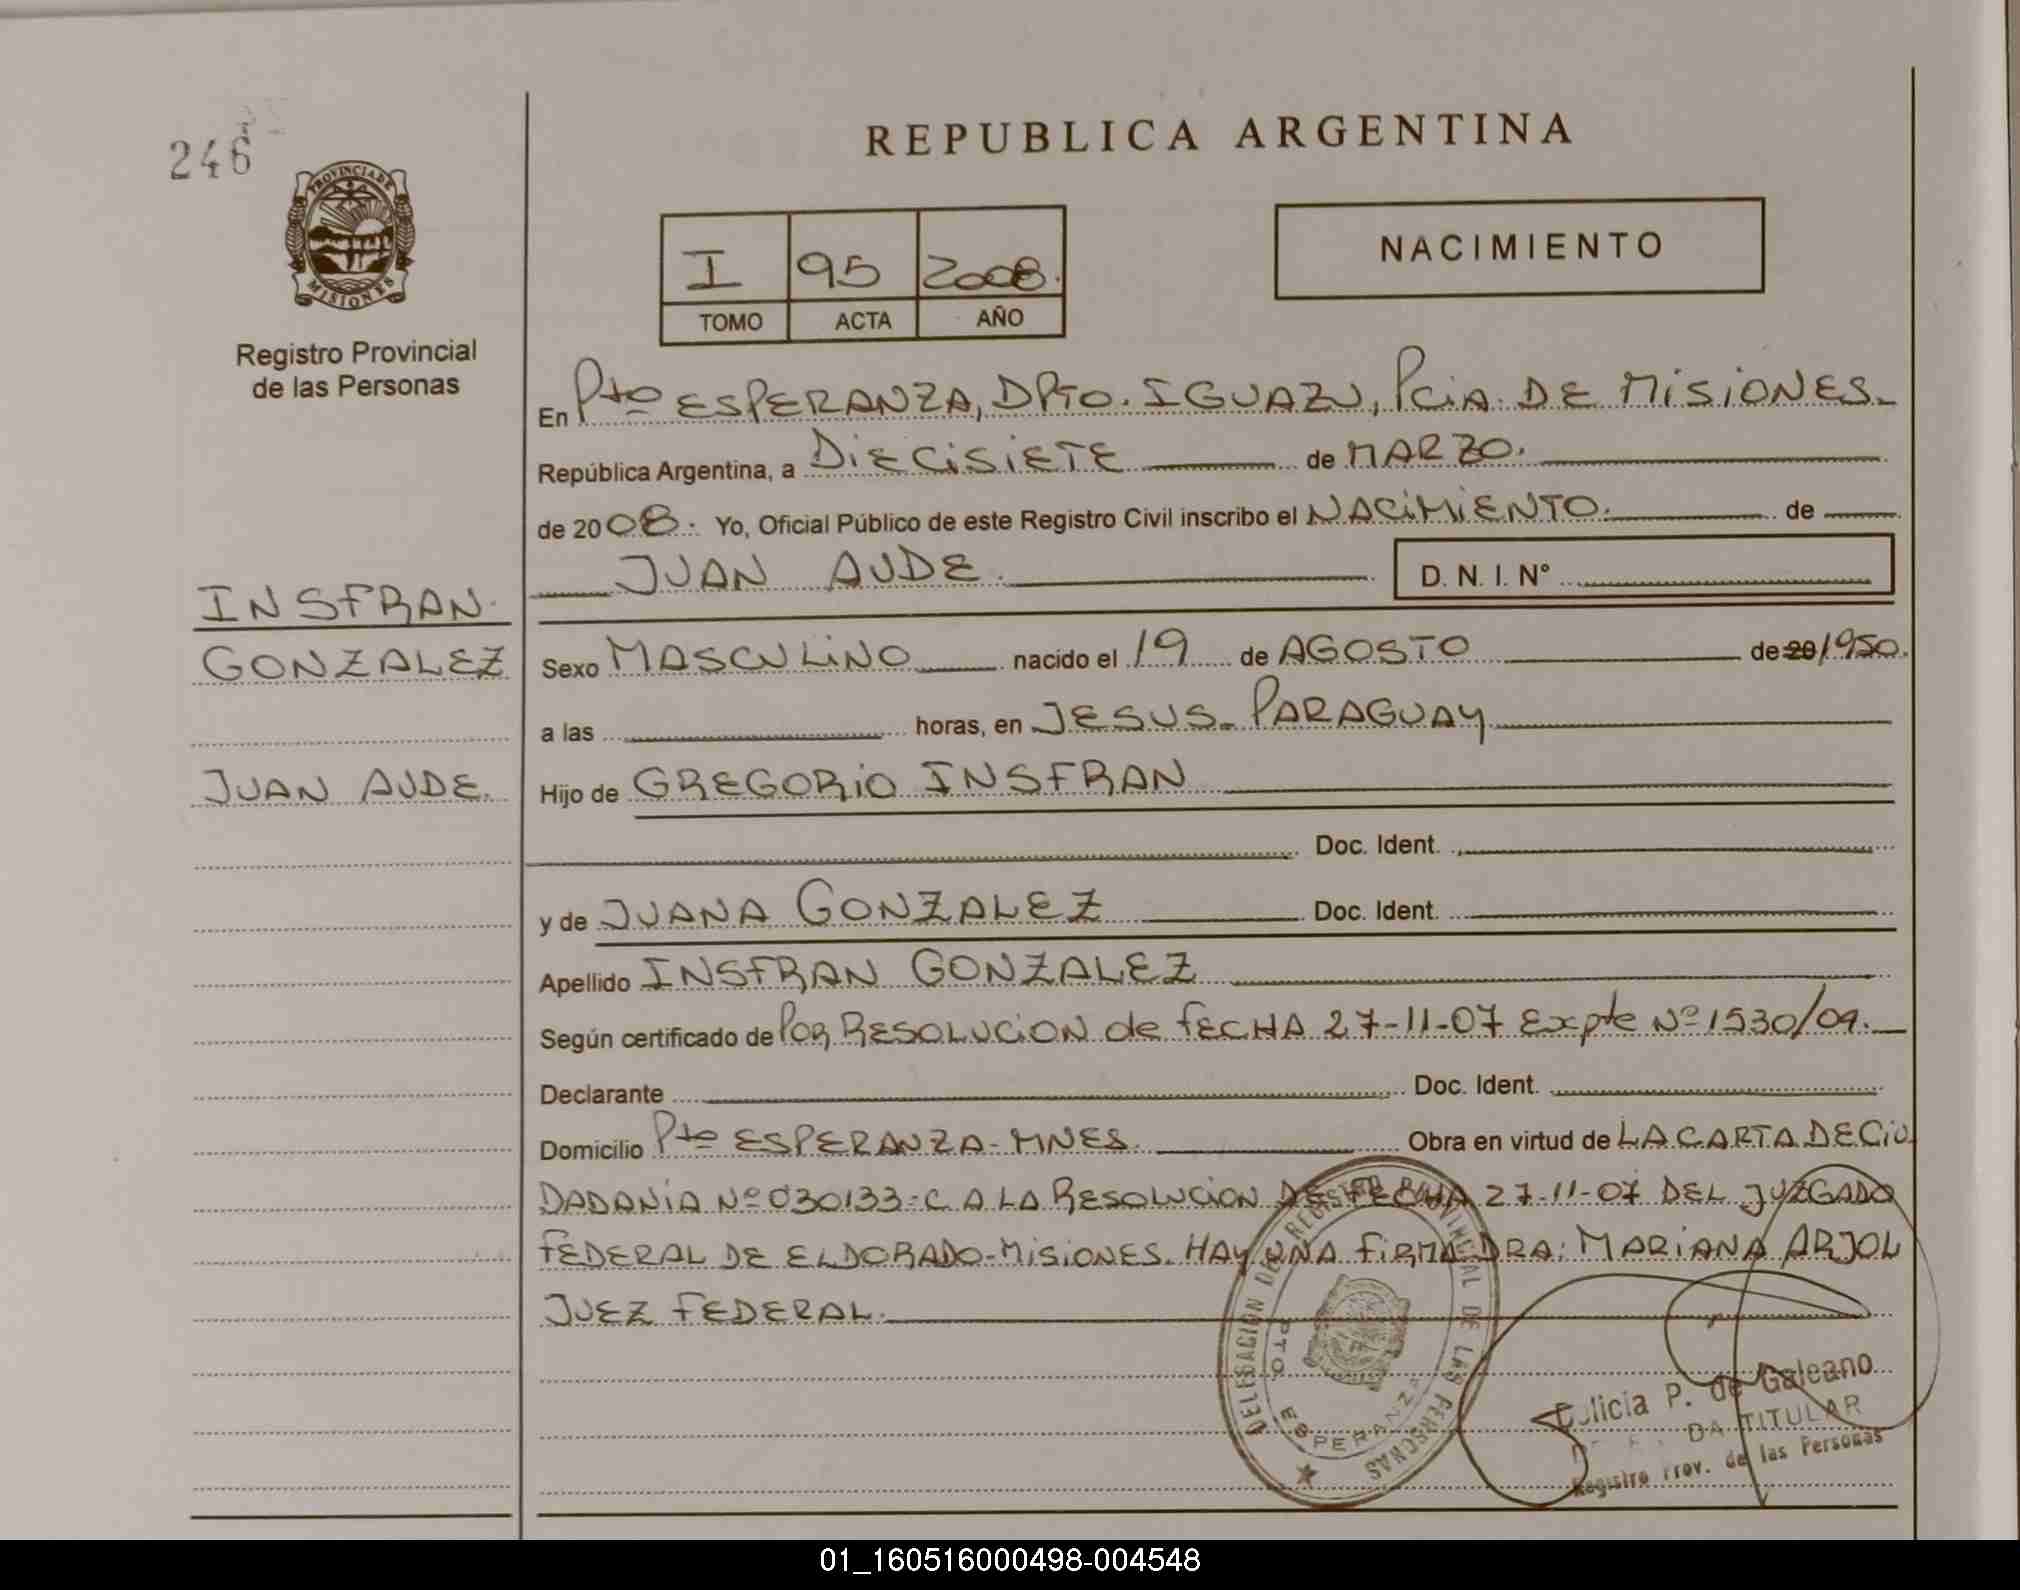 246
PROVINCIA DE
MISIONES
Registro Provincial
de las Personas
REPUBLICA ARGENTINA
I 95 2008.
TOMO ACTA AÑO
NACIMIENTO
En Pto ESPERANZA, DPTO. IGUAZU, PCIA. DE MISIONES.
República Argentina, a DIECISIETE de MARZO.
de 2008. Yo, Oficial Público de este Registro Civil inscribo el NACIMIENTO. de
JUAN AUDE. D. N. I. N°
INSFRAN.
GONZALEZ
JUAN AUDE.
Sexo MASCULINO nacido el 19 de AGOSTO de 20 1950.
a las horas, en JESUS - PARAGUAY
Hijo de GREGORIO INSFRAN
Doc. Ident.
y de JUANA GONZALEZ Doc. Ident.
Apellido INSFRAN GONZALEZ
Según certificado de POR RESOLUCION de FECHA 27-11-07 Expte Nº 1530/09.
Declarante Doc. Ident.
Domicilio Pto ESPERANZA - MNES. Obra en virtud de LA CARTA DE CIU
DADANIA Nº 030133-C A LA RESOLUCION DE FECHA 27-11-07 DEL JUZGADO
FEDERAL DE ELDORADO - MISIONES. HAY UNA FIRMA DRA: MARIANA ARJOL
JUEZ FEDERAL.
DELEGACION DEL REGISTRO PROVINCIAL DE LAS PERSONAS
PTO ESPERANZA
P. de Galeano
TITULAR
Registro Prov. de las Personas
01_160516000498-004548